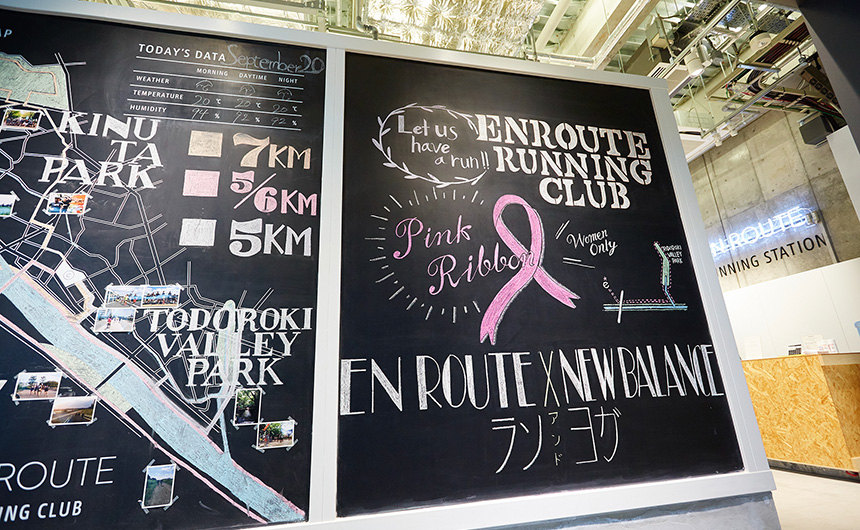 AP
TODAY'S DATA September 20
MORNING DAYTIME NIGHT
WEATHER
TEMPERATURE 20 ℃ 20 ℃ 20 ℃
HUMIDITY 94 % 92 % 92 %
KINU
TA
PARK
7KM
5/6KM
5KM
TODOROKI
VALLEY
PARK
ROUTE
NING CLUB
Let us
have
a run!!
ENROUTE
RUNNING
CLUB
Pink
Ribbon
Women
Only
TODOROKI
VALLEY
PARK
EN ROUTE X NEW BALANCE
ラン アンド ヨガ
N ROUTE
NNING STATION